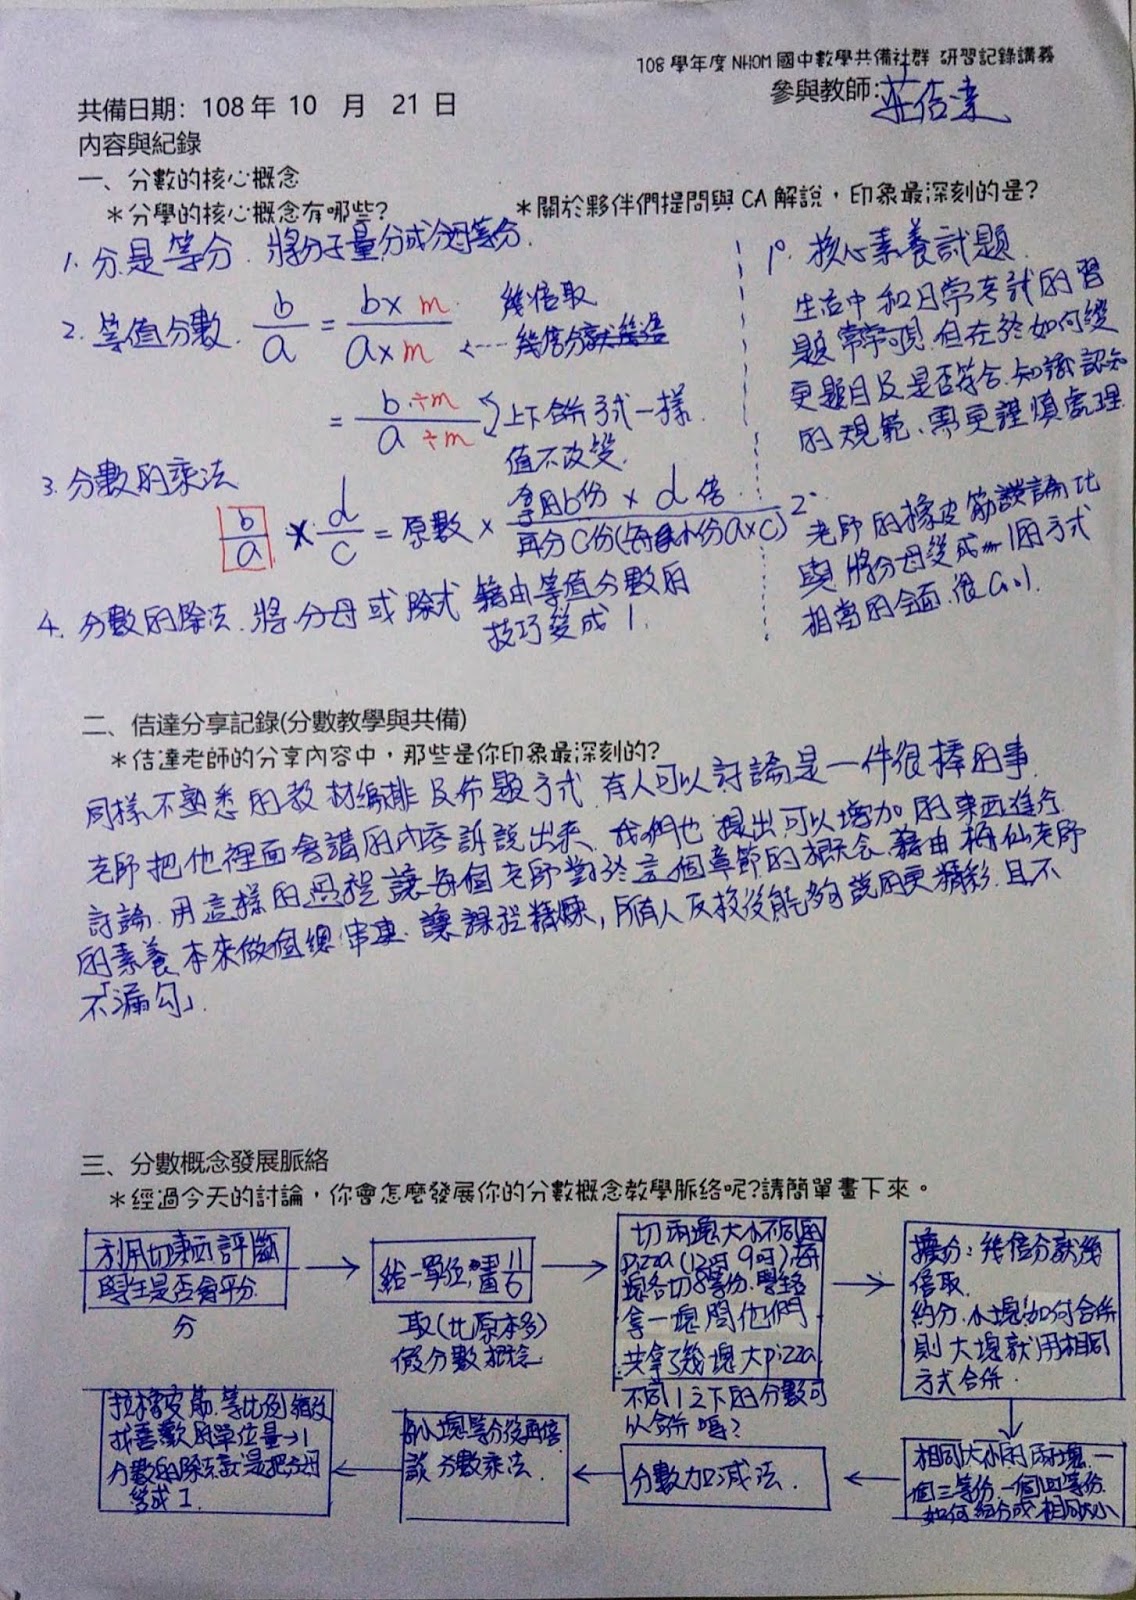 108學年度NHOM國中數學共備社群 研習記錄講義
共備日期：108年 10 月 21 日
參與教師：莊佶達
內容與紀錄
一、分數的核心概念
＊分學的核心概念有哪些?
1. 分是等分. 將分子量分成分母等分.
2. 等值分數. b/a = b×m/a×m 幾倍取
<---- 幾倍分就幾倍
= b÷m/a÷m 上下合併方式一樣.
值不改變.
3. 分數的乘法
b/a × d/c = 原數 × 拿用b份 × d倍/再分c份(每最小份a×c)
4. 分數的除法. 將分母或除式 藉由等值分數的
技巧變成 1.
＊關於夥伴們提問與CA解說，印象最深刻的是?
1° 核心素養試題
生活中和日常考試的習
題常常可見. 但在於如何變
更題目及是否符合.知識認知
的規範、需更謹慎處理.
2°
老師的橡皮筋談論比
與 將分母變成 1的方式
相當的全面.
二、佶達分享記錄(分數教學與共備)
＊佶達老師的分享內容中，那些是你印象最深刻的?
同樣不熟悉的教材編排及佈題方式. 有人可以討論是一件很棒的事.
老師把他裡面會講的內容訴說出來. 我們也提出可以增加的東西進行
討論. 用這樣的過程讓每個老師對於這個章節的概念. 藉由梅仙老師
的素養本來做個總串連. 讓課程精煉，所有人反校後能夠說的更精彩.且不
不「漏勾」.
三、分數概念發展脈絡
＊經過今天的討論，你會怎麼發展你的分數概念教學脈絡呢?請簡單畫下來。
利用切東西評斷
學生是否會平分.
分
給一單位,畫 11/6
取(比原本多)
假分數概念
切兩塊大小不同的
pizza(12吋 9吋)每
塊各切8等份. 學生各
拿一塊問他們
共拿了幾塊大pizza.
不同1之下的分數可
以合併嗎?
擴分: 幾倍分就幾
倍取.
約分. 小塊如何合併
則大塊就用相同
方式合併.
相同大小的兩塊. 一
個三等份. 一個四等份.
如何細分成相同大小
分數加減法.
小塊等分後再倍
談分數乘法.
拉橡皮筋. 等比例縮放
找喜歡的單位量→1
分數的除法就是把分母
變成1.